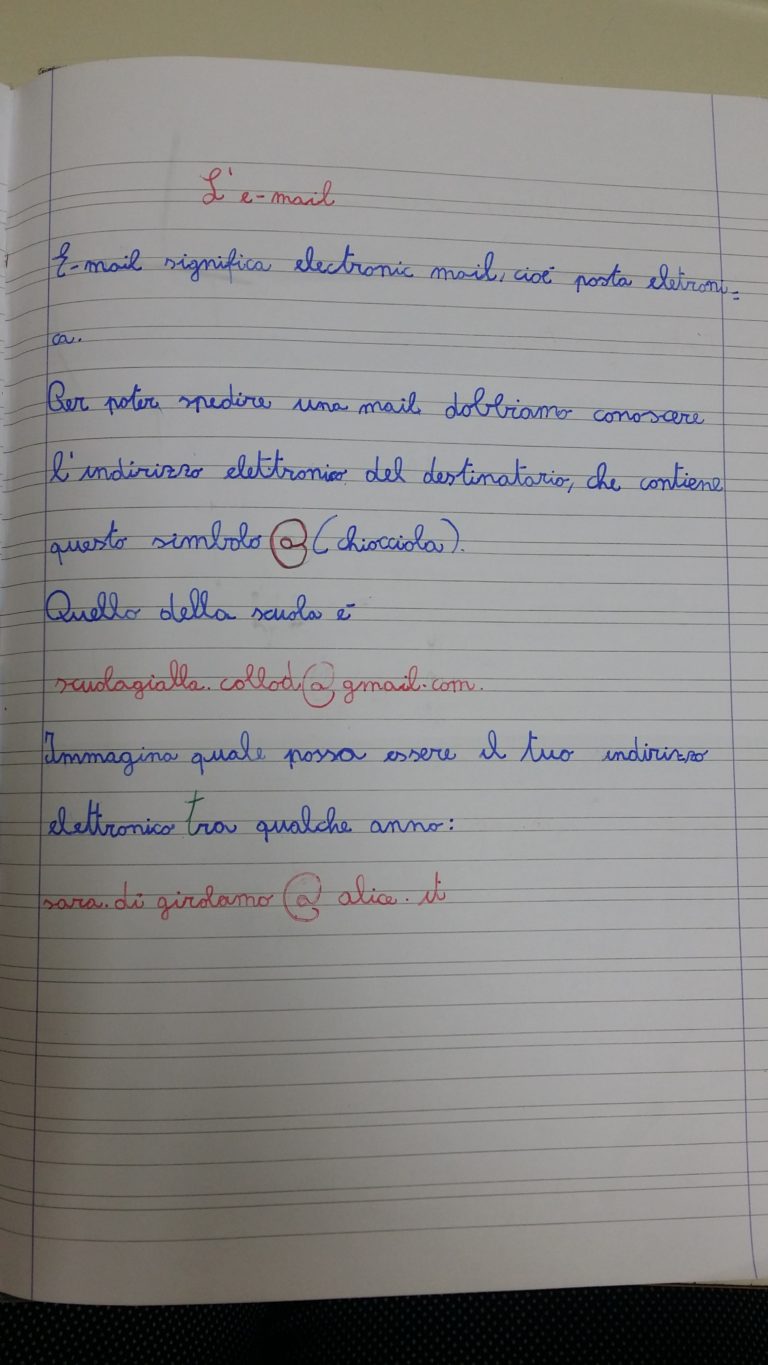 L'e-mail
E-mail significa electronic mail, cioè posta eletroni=
ca.
Per poter spedire una mail dobbiamo conoscere
l'indirizzo elettronico del destinatario, che contiene
questo simbolo @ (chiocciola).
Quello della scuola è
scuolagialla.collod@gmail.com.
Immagina quale possa essere il tuo indirizzo
elettronico tra qualche anno:
sara.di girolamo @ alice.it